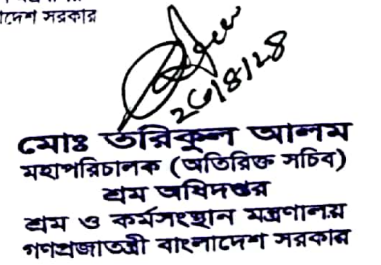 সরকার
মোঃ তরিকুল আলম
মহাপরিচালক (অতিরিক্ত সচিব)
শ্রম অধিদপ্তর
শ্রম ও কর্মসংস্থান মন্ত্রণালয়
গণপ্রজাতন্ত্রী বাংলাদেশ সরকার